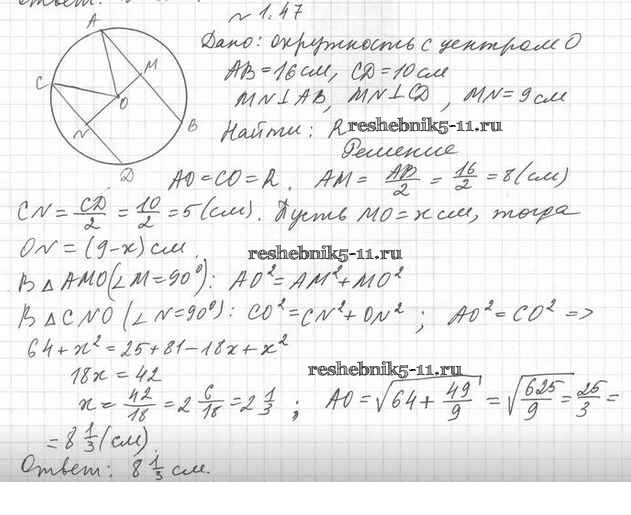 Ответ:
№ 1.47
Дано: окружность с центром O
AB = 16 см, CD = 10 см
MN ⊥ AB, MN ⊥ CD, MN = 9 см
Найти: R
reshebnik5-11.ru
Решение
A
C
M
O
N
B
D
AO = CO = R. AM = AB/2 = 16/2 = 8 (см)
CN = CD/2 = 10/2 = 5 (см). Пусть MO = x см, тогда
ON = (9-x) см.
reshebnik5-11.ru
В △ AMO (∠M = 90°): AO² = AM² + MO²
В △ CNO (∠N = 90°): CO² = CN² + ON² ; AO² = CO² =>
64 + x² = 25 + 81 - 18x + x²
reshebnik5-11.ru
18x = 42
x = 42/18 = 2 6/18 = 2 1/3 ; AO = √(64 + 49/9) = √(625/9) = 25/3 =
= 8 1/3 (см).
Ответ: 8 1/3 см.